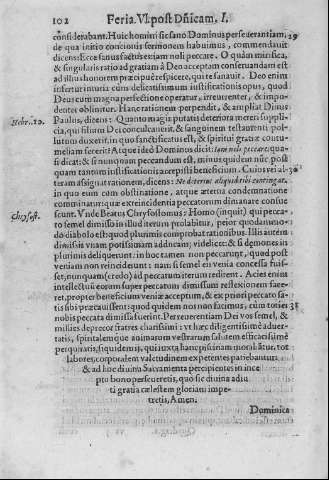 102 Feria. VI. post Dñicam. I.
considerabam. Huic homini sic sano Dominus perseverantiam, 29
de qua initio concionis sermonem habuimus, commendauit
dicens: Ecce sanus factus es: iam noli peccare. O quàm mirifica,
& singularis ratio ad gratiam à Deo acceptam conseruandam est
ad illorum honorem præcipuè respicere, qui te sanauit. Deo enim
infertur iniuria cùm delictissimum iustificationis opus, quod
Deus cum magna perfectione operatur, irreuerenter, & impu-
denter oblinitur. Hanc rationem perpendit, & ampliat Diuus
Hebr. 10. Paulus, dicens: Quanto magis putatis deteriora mereri suppli-
cia, qui filium Dei conculcauerit, & sanguinem testamenti pol-
lutum duxerit, in quo sanctificatus est, & spiritui gratiæ contu-
meliam fecerit? Atque ideò Dominus dicit: Iam noli peccare, qua-
si dicat: & si nunquam peccandum est, minus quidem nunc post
quàm tantum iustificationis accepisti beneficium. Cuius rei al- 30
teram assignat rationem, dicens: Ne deterius aliquid tibi contingat,
in quo eum com obstinatione, atque æterna condemnatione
comminatur: quæ ex reincidentia peccatorum dimanare consue
Chrysost. scunt. Vnde Beatus Chrysostomus: Homo (inquit) qui pecca-
to semel dimisso in illud iterum prolabitur, peior quodammo-
do diabolo est: quod plurimis comprobat rationibus. Illi autem
dimissis vnam potissimùm adducam; videlicet: & si demones in
plurimis deliquerunt: in hoc tamen non peccarunt, quod post
veniam non reinciderunt: nam si semel en venia concessa fuis-
set, nunquam (credo) ad peccatum iterum redirent. Acies enim
intellectus eorum super peccatum dimissum reflexionem face-
ret, propter beneficium veniæ acceptum, & ex priori peccato sa-
tis sibi præcauissent: quod quidem nos non facimus, cùm toties 31
nobis peccata dimissa fuerint. Perseuerentiam Dei vos semel, &
millies deprecor fratres charissimi: vt hæc diligentissimè aduer-
tatis, spiritalemque animarum vestrarum salutem efficacissimè
perquiratis, siquidem ij, qui iuxta hanc piscinam morabãtur, tot
labores, corporalem valetudinem expetentes patiebantur:
& ad hoc diuina Sacramenta percipientes in ince
pto bono perseueretis, quo sic diuina adiu
ti gratia cælestem gloriam impe-
tretis, Amen.
Dominica